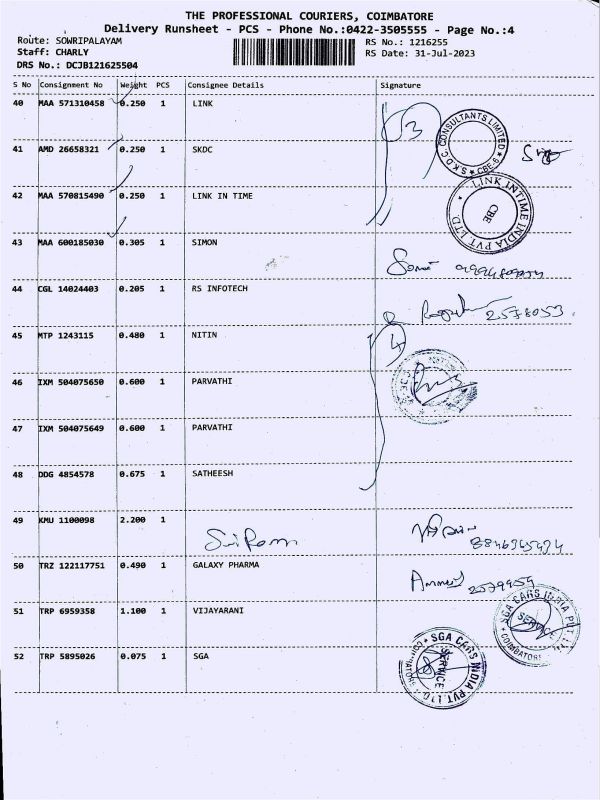 THE PROFESSIONAL COURIERS, COIMBATORE
Delivery Runsheet - PCS - Phone No.:0422-3505555 - Page No.:4
Route: SOWRIPALAYAM RS No.: 1216255
Staff: CHARLY RS Date: 31-Jul-2023
DRS No.: DCJB121625504
S No Consignment No Weight PCS Consignee Details Signature
40 MAA 571310458 0.250 1 LINK 3
S.K.D.C. CONSULTANTS LIMITED CBE-6
41 AMD 26658321 0.250 1 SKDC
42 MAA 570815490 0.250 1 LINK IN TIME
LINK INTIME INDIA PVT. LTD. CBE
43 MAA 600185030 0.305 1 SIMON
44 CGL 14024403 0.205 1 RS INFOTECH
2578053
45 MTP 1243115 0.480 1 NITIN 4
46 IXM 504075650 0.600 1 PARVATHI
47 IXM 504075649 0.600 1 PARVATHI
48 DDG 4854578 0.675 1 SATHEESH
49 KMU 1100098 2.200 1
50 TRZ 122117751 0.490 1 GALAXY PHARMA
2579959
51 TRP 6959358 1.100 1 VIJAYARANI
SGA CARS INDIA PVT. LTD SERVICE COIMBATORE
52 TRP 5895026 0.075 1 SGA
SGA CARS INDIA PVT. LTD SERVICE COIMBATORE